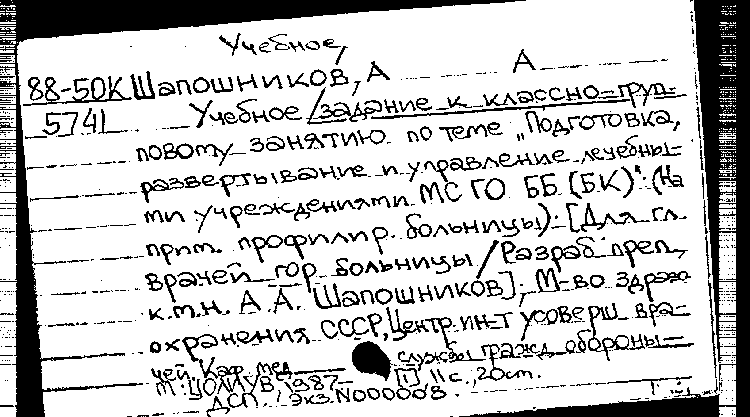 Учебное,
88-50К Шапошников, А А
5741 Учебное /задание к классно=груп-
повому занятию по теме „Подготовка,
развертывание и управление лечебны-
ми учреждениями МС ГО ББ (БК)": (На
прим. профилир. больницы). [Для гл.
врачей гор больницы / Разраб преп,
к.м.н. А А. Шапошников]; М-во здраво
охранения СССР, Центр. ин-т усоверш вра-
чей, Каф. мед службы гражд обороны-
М: ЦОЛИУВ, 1987 [1] 11с., 20см.
ДСП. Экз. N000008.